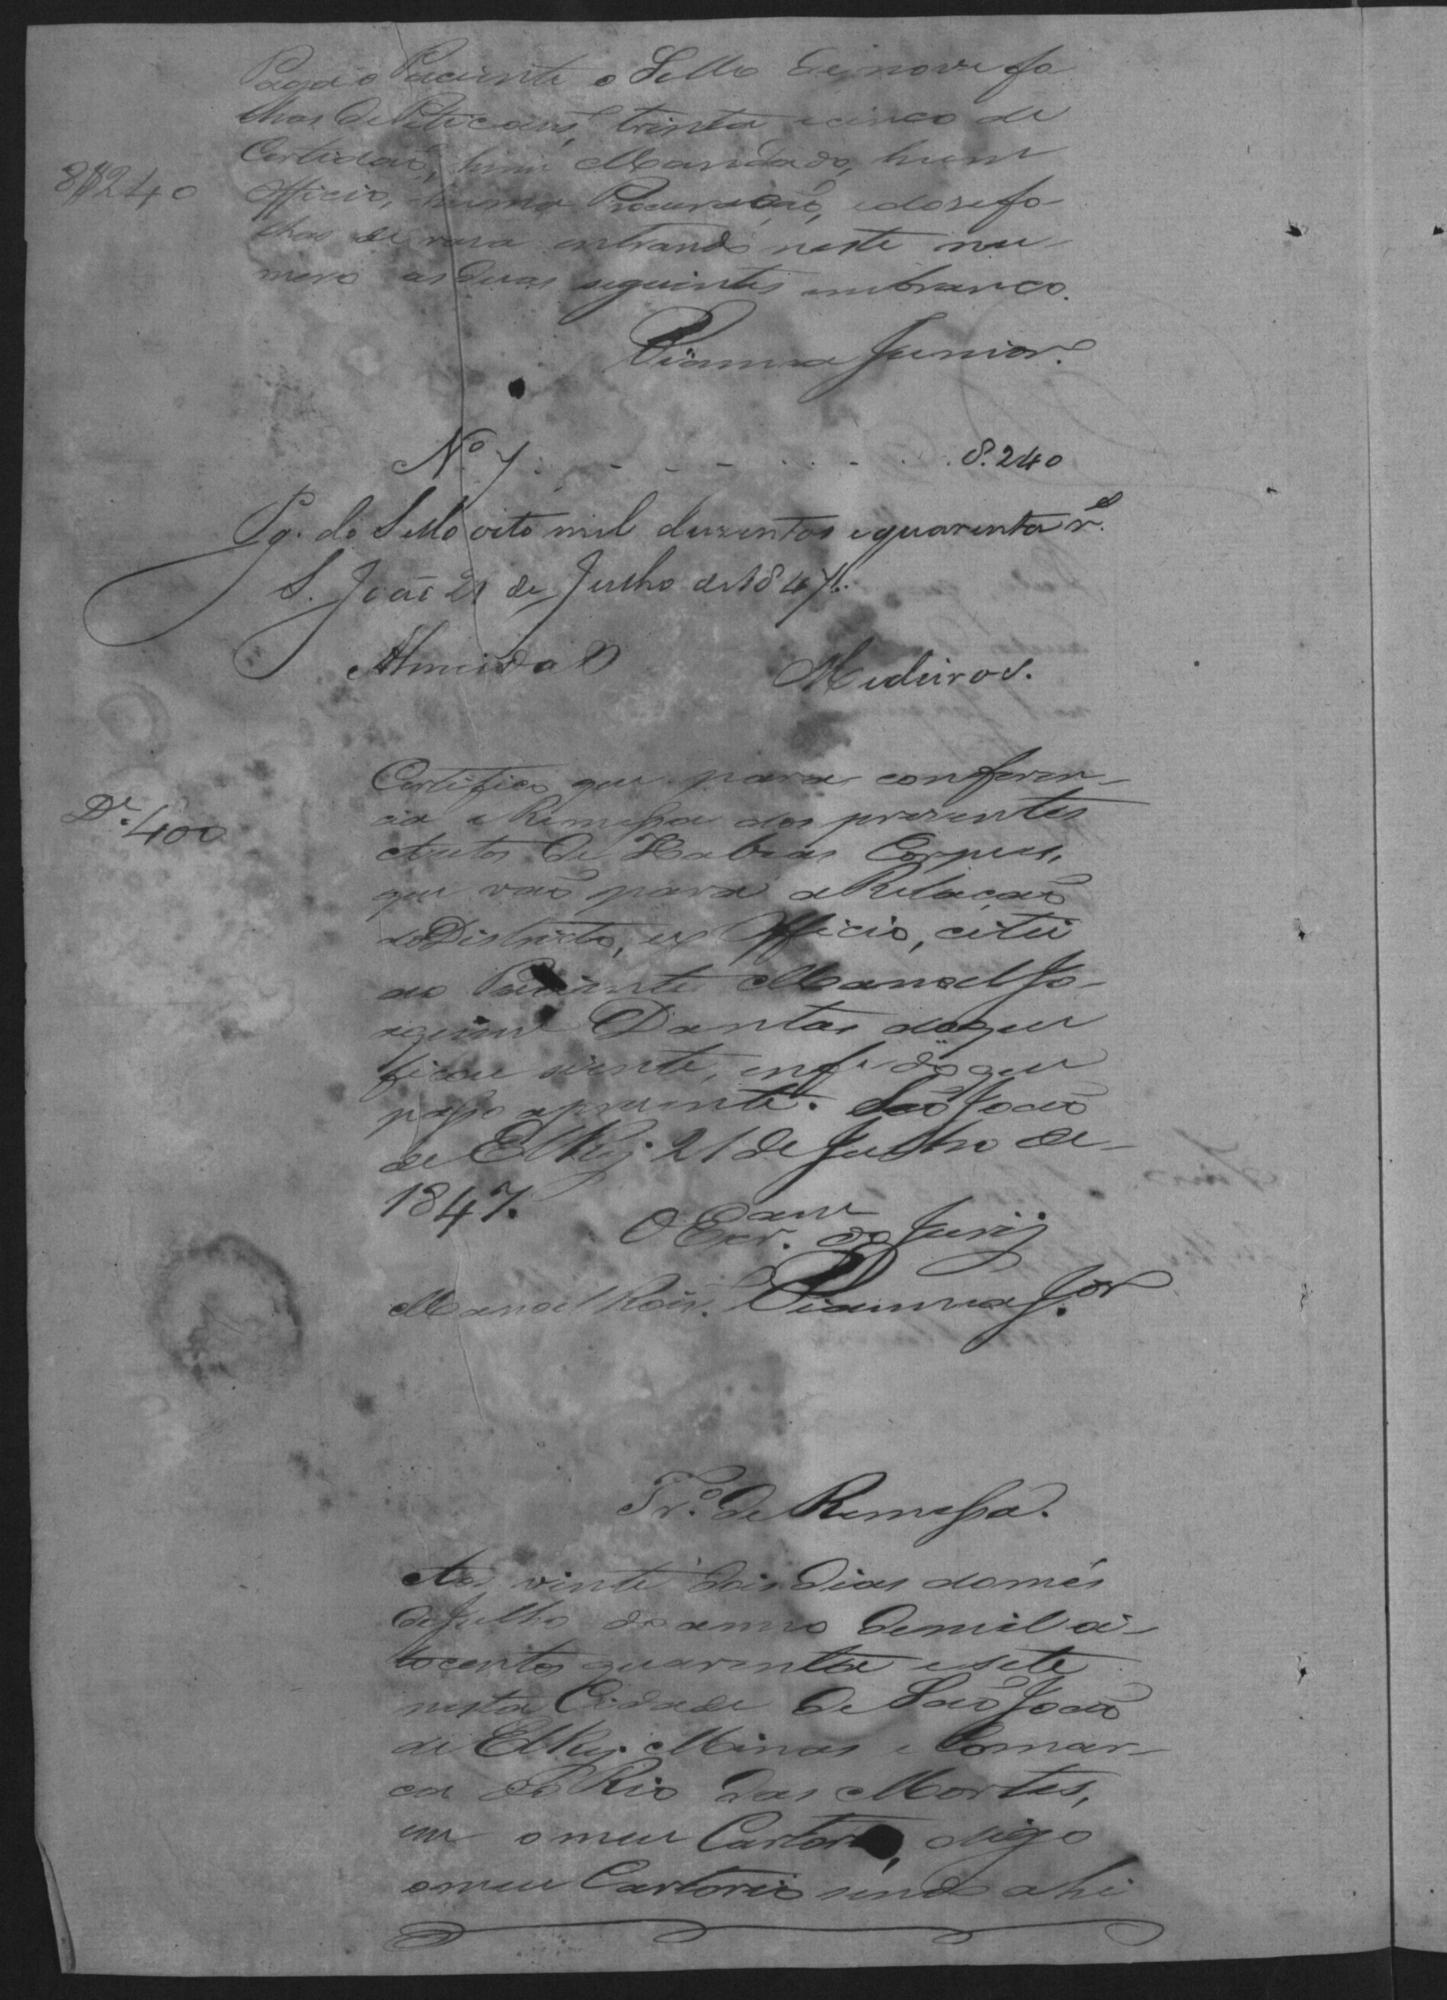 Paga o Paciente o Sello de nove fo
lhas de Peticaõ, trinta e cinco de
Certidaõ, hum Mandado, hum
8$240
Officio, huma Procuraçaõ, e dose fo-
lhas de rasa entrando neste nu-
mero as duas seguintes em branco.
Vianna Junior.
Nº 7. 8.240
Pg. de Sello oito mil duzentos e quarenta rs.
S. Joaõ 21 de Julho de 1847.
Almeida Medeiros.
Certifico que para conferen-
Dª. 400
cia e Remessa dos prezentes
Autos de Habeas Corpus,
que vaõ para a Relaçaõ
do Districto, ex Officio, citei
ao Paciente Manoel Jo-
aquim Dantas do que
ficou siente, em fé do que
passo a presente. Saõ Joaõ
de El Rej 21 de Julho de
1847.
O Escr.am do Jurij
Manoel Roiz. Vianna Jor
Tr.º de Remessa.
Aos vinte dois dias do mês
de Julho do anno de mil oi-
tocentos quarenta e sete
nesta Cidade de Saõ Joaõ
de El Rej Minas e Comar-
ca do Rio das Mortes,
em o meu Cartorio, digo
o meu Cartorio sendo ahi